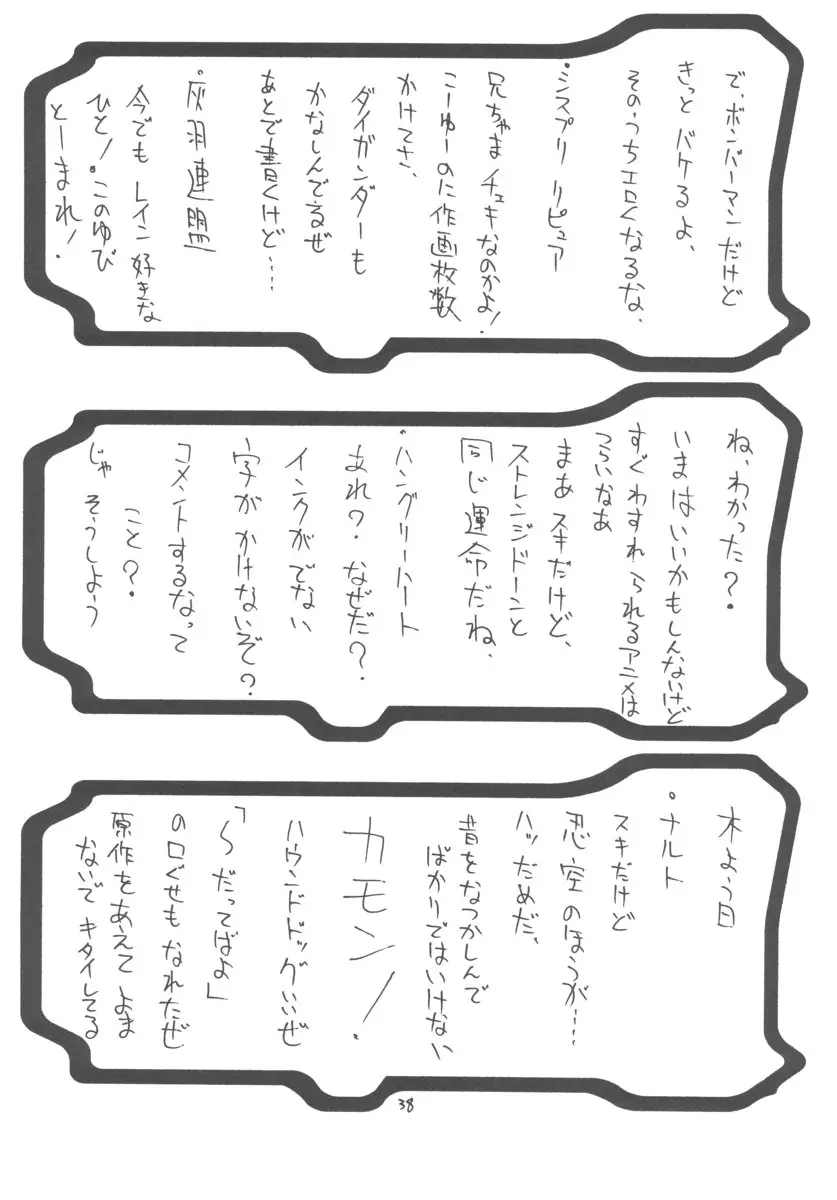 で、ボンバーマンだけど
きっと バケるよ、
そのうちエロくなるな、
・シスプリ リピュア
兄ちゃま チェキなのかよ!
こーゆーのに作画枚数
かけてさ、
ダイガンダーも
かなしんでるぜ
あとで書くけど…
・灰羽連盟
今でも レイン好きな
ひと!このゆび
とーまれ!
ね、わかった?
いまはいいかもしんないけど
すぐわすれられるアニメは
つらいなあ
まあ スキだけど、
ストレンジドーンと
同じ運命だね、
・ハングリーハート
あれ?なぜだ?
インクがでない
字が かけないぞ?
コメントするなって
こと?
じゃ そうしよう
木よう日
・ナルト
スキだけど
忍空のほうが…
ハッだめだ、
昔をなつかしんで
ばかりではいけない
カモン!
ハウンドドッグいいぜ
「〜だってばよ」
の口ぐせも なれたぜ
原作をあえて よま
ないで キタイしてる
38